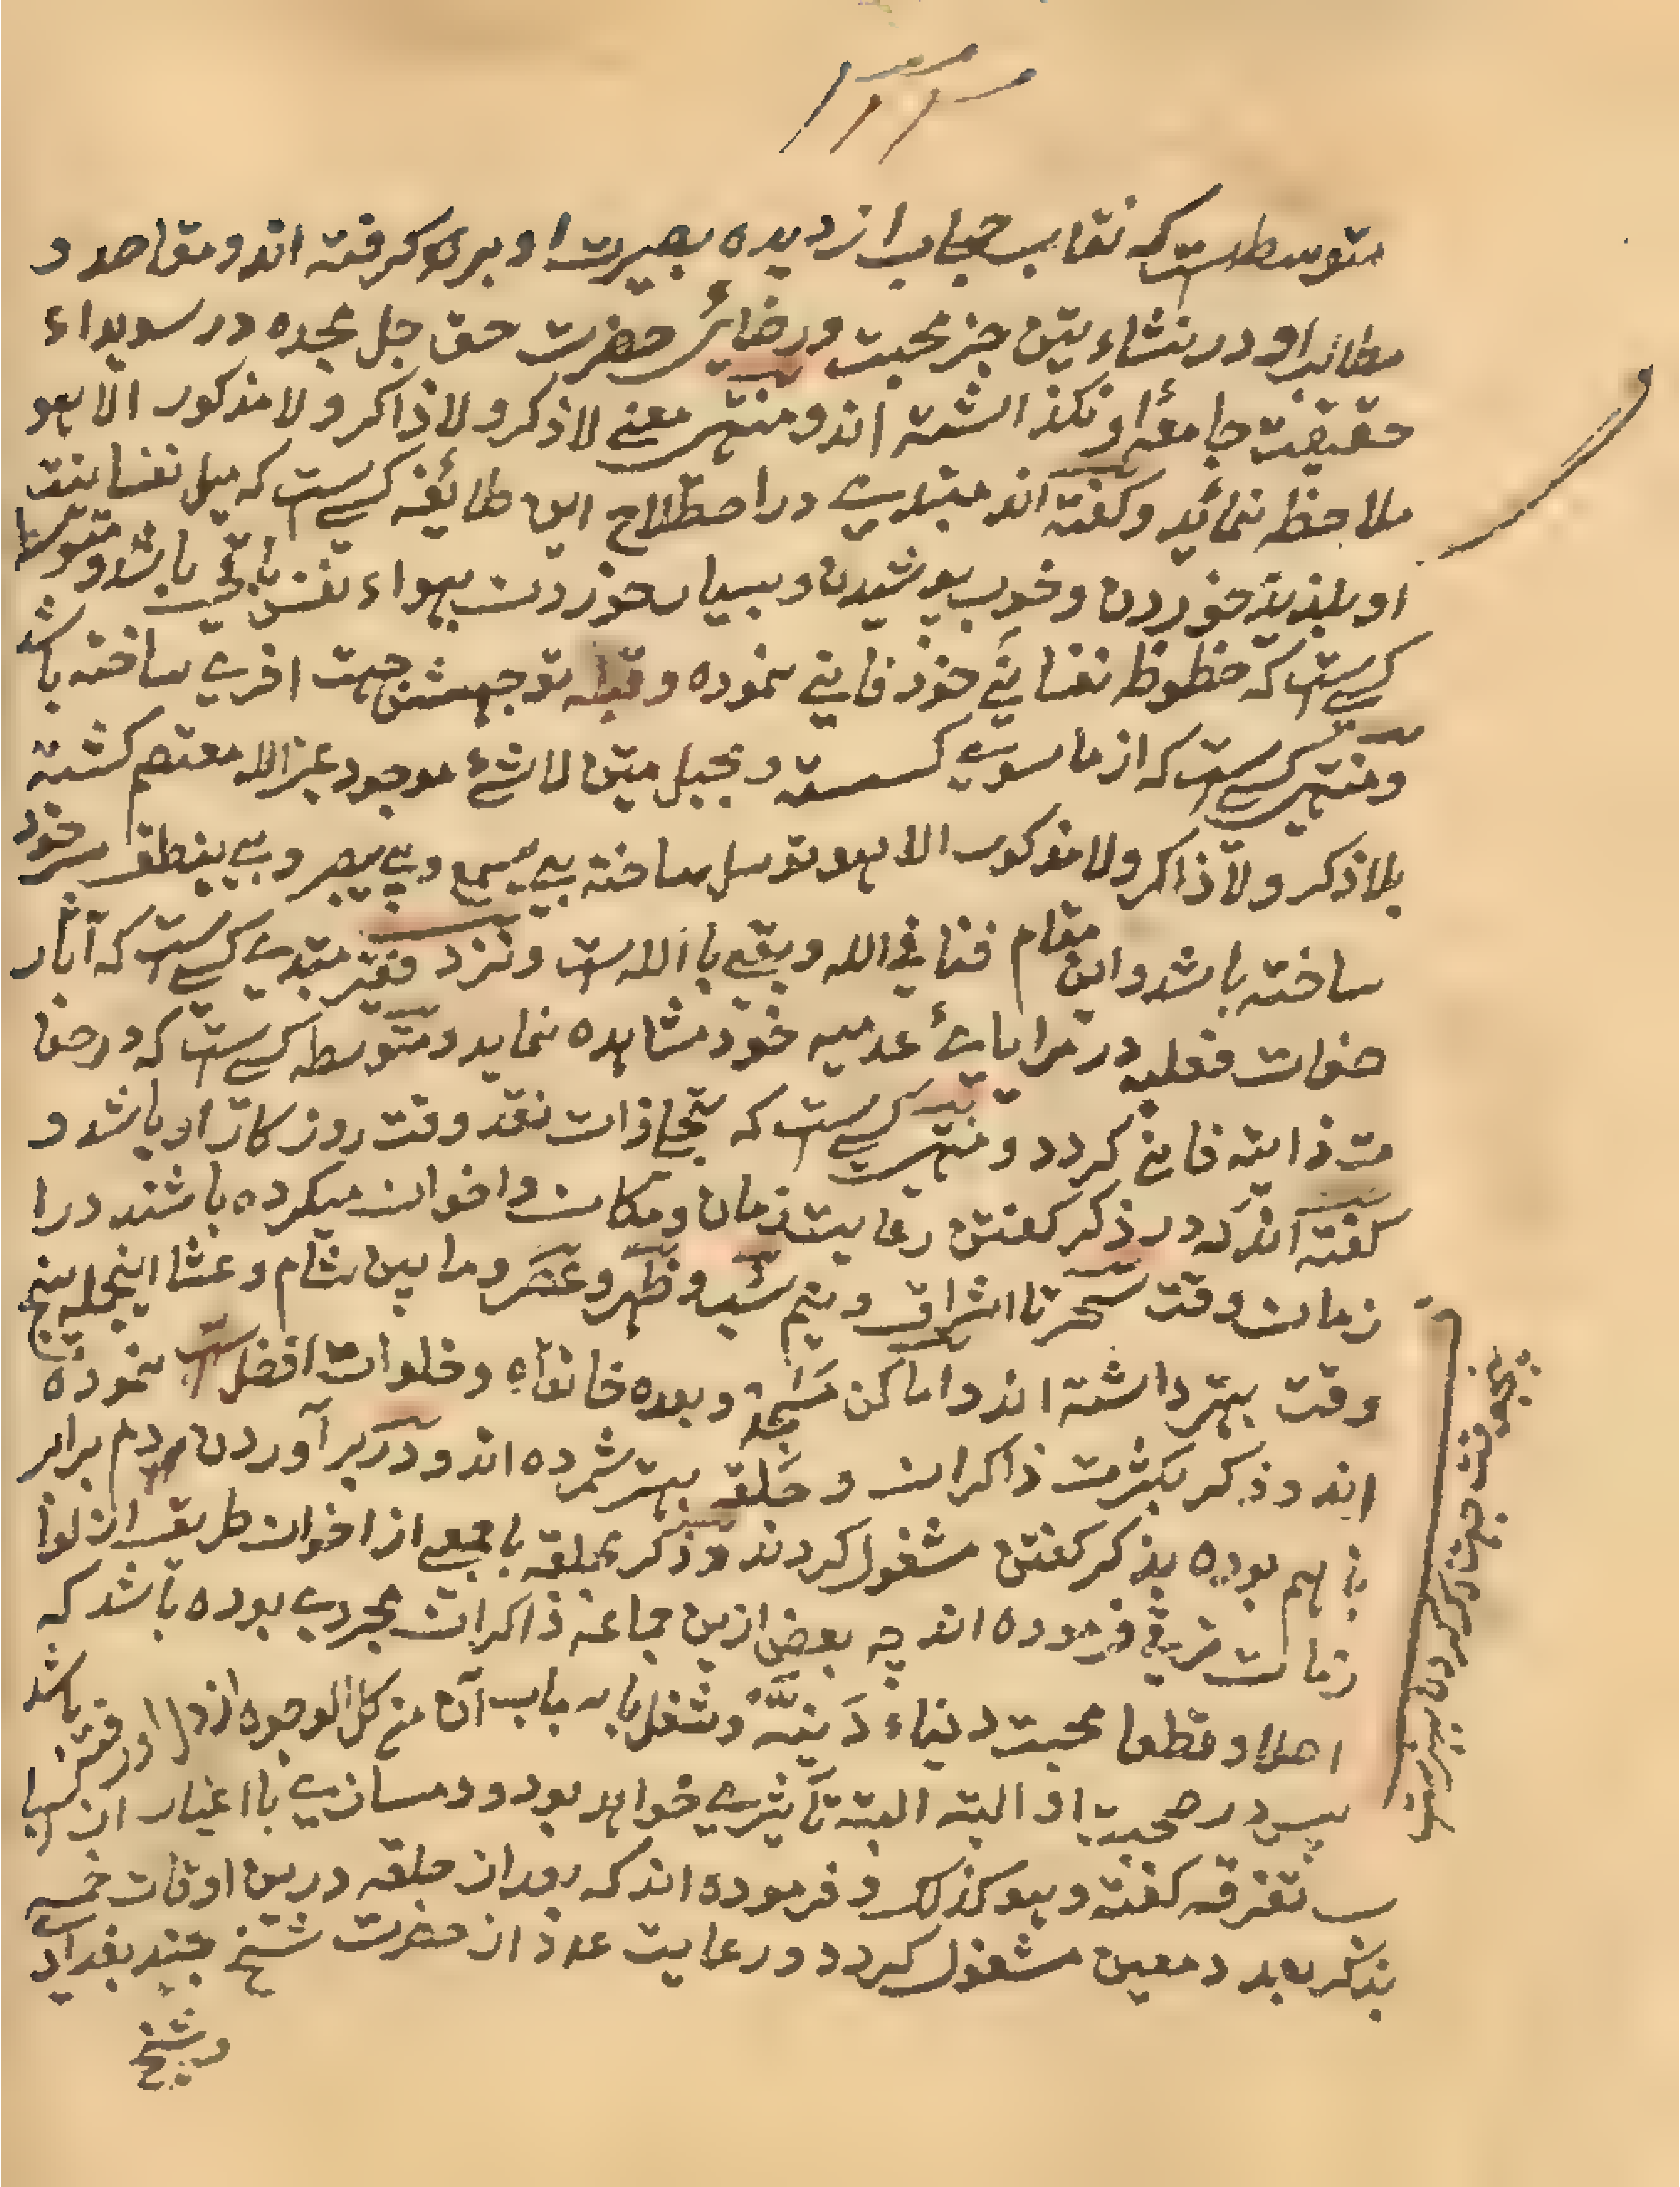 متوسط است که نقاب حجاب از دیده بصیرت او برگرفته اند و مقاصد و
مطالب او در نشاءتین جز محبت و رضائے حضرت حق جل مجده در سویداء
حقیقت جامعهٔ او نگذاشته اند و منتهی معنے لا ذکر و لا ذاکر و لا مذکور الا هو
ملاحظه نماید و گفته اند مبتدی در اصطلاح این طائفه کسے ست که میل نفسانیت
او بلذیذ خوردن و خوب پوشیدن و بسیار خوردن بهواء نفس باقی باشد و متوسط
کسے ست که حظوظ نفسانی خود فانی نموده و قبله توجهش جهت اخری ساخته باشد
و منتهی کسے ست که از ما سوی گسسته و بحبل متین لا شئ موجود غیر الله معتصم گشته
بلا ذکر و لا ذاکر و لا مذکور الا هو توسل ساخته بے یسمع و بے یبصر و بے ینطق خود
ساخته باشد و این مقام فنا فی الله و بقے با الله ست و نزد فقیر مبتدی کسے ست که آثار
صفات فعلیه در مرایائے عدمیه خود مشاهده نماید و متوسطه کسے ست که در صفا
ت ذاتیه فانی گردد و منتهی کسے ست که تجلی ذات نقد وقت روزگار او باشد و
گفته اند که در ذکر گفتن رعایت زمان و مکان و اخوان میکرده باشند در ا
زمان وقت سحر تا اشراق و نیم شب و ظهر و عصر و ما بین شام و عشا اینجمله پنج
وقت بهتر داشته اند و اماکن مسجد و بعده خانقاه و خلوات افضل ست نموده
اند و ذکر بکثرت ذاکران و حلقه بهتر شمرده اند و در برآوردن مردم برابر
با هم بوده بذکر گفتن مشغول گردند و ذکر بحلقه با جمعے از اخوان طریقه از لوا
زمات فرموده اند چه بعض ازین جماعه ذاکران مجردی بوده باشد که
اصلا و قطعا محبت دنیاء دنیّه و شغل با به باب آن من کل الوجوه از دل او رفته باشد
پس در صحبت او البته البته تاثیری خواهد بود و دمسازی با اغیار از اسبا
ب تفرقه گفته و هو کذلک و فرموده اند که بعد از حلقه درین اوقات خمسه
بذکر بعدد معین مشغول گردد و رعایت عدد از حضرت شیخ جنید بغدادی
و شیخ
پنج وقت جهت ذکر کردن بهتر است